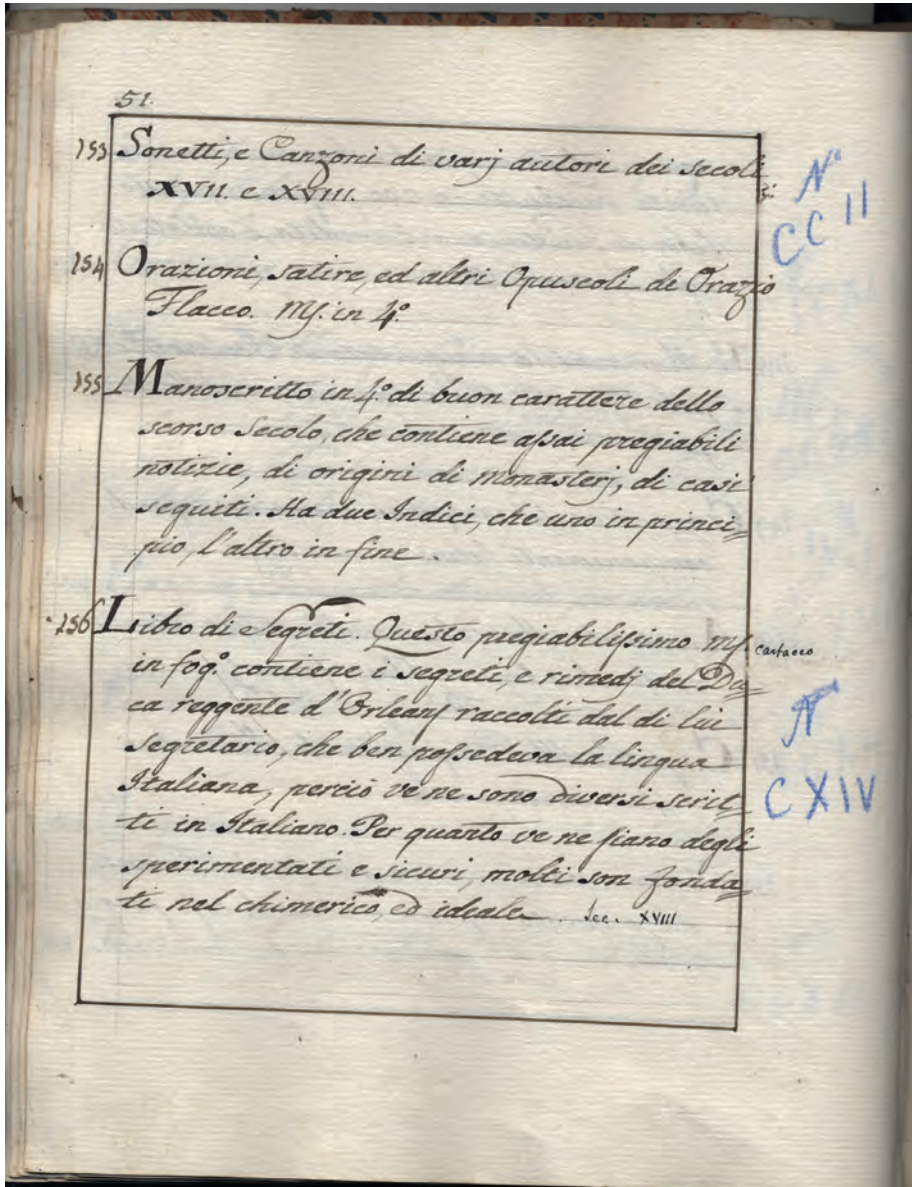 51.
153 Sonetti, e Canzoni di varj autori dei secoli
XVII. e XVIII.
N°
CCII
154 Orazioni, satire, ed altri Opuscoli di Orazio
Flacco. Mſ. in 4°.
155 Manoscritto in 4° di buon carattere dello
scorso Secolo, che contiene aſsai pregiabili
notizie, di origini di monasterj, di casi
seguiti. Ha due Indici, che uno in princi=
pio, l'altro in fine.
156 Libro di Segreti. Questo pregiabiliſsimo mſ. cartaceo
in fog.° contiene i segreti, e rimedj del Du=
ca reggente d'Orleans raccolti dal di lui
segretario, che ben poſsedeva la lingua
Italiana, perciò ve ne sono diversi scrit=
ti in Italiano. Per quanto ve ne siano degli
sperimentati e sicuri, molti son fonda=
ti nel chimerico, ed ideale. Sec. XVIII
N
CXIV